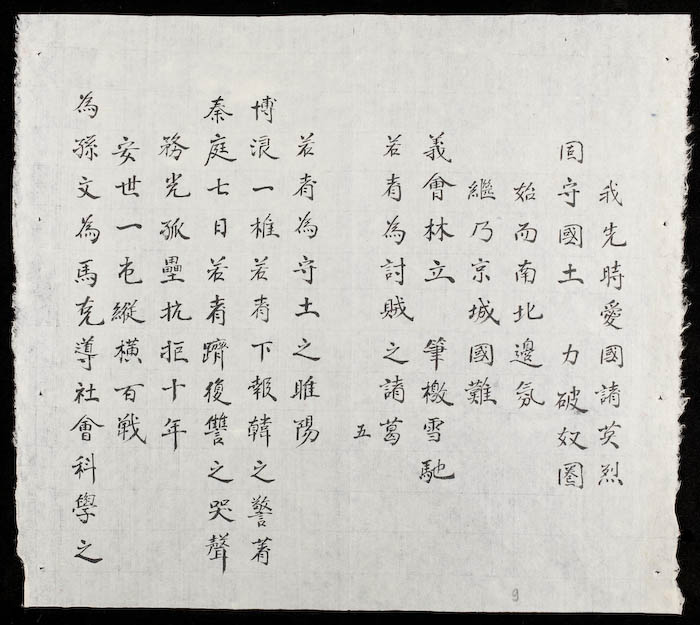 我先時愛國諸英烈
固守國土 力破奴圈
始而南北邊氛
繼乃京城國難
義會林立 筆檄雪馳
若者為討賊之諸葛
五
若者為守土之睢陽
博浪一椎若者下報韓之警着
秦庭七日若者躋復讐之哭聲
務光孤壘抗拒十年
安世一屯縱橫百戦
為孫文為馬克導社會科學之
9